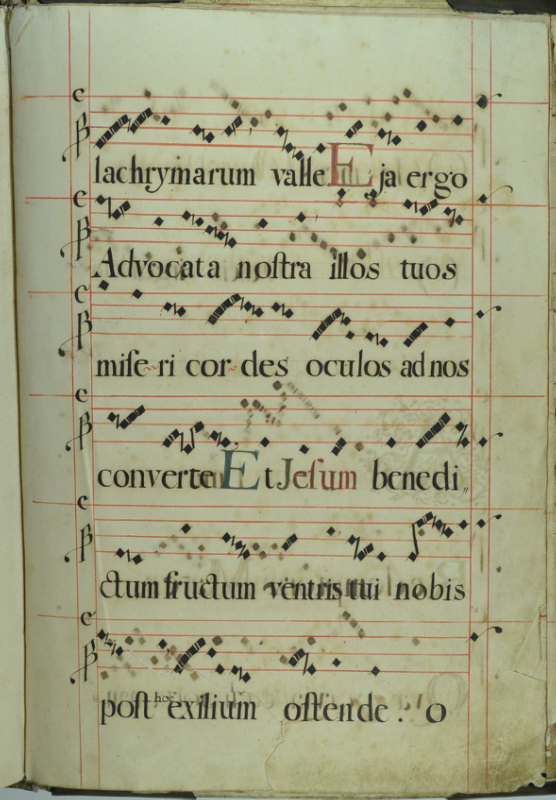 lachrymarum valle Eja ergo
Advocata noſtra illos tuos
miſe~ri cor~des oculos ad nos
converte Et Jeſum benedi„
ctum fructum ventris tui nobis
poſt hoc exilium oſtende. O